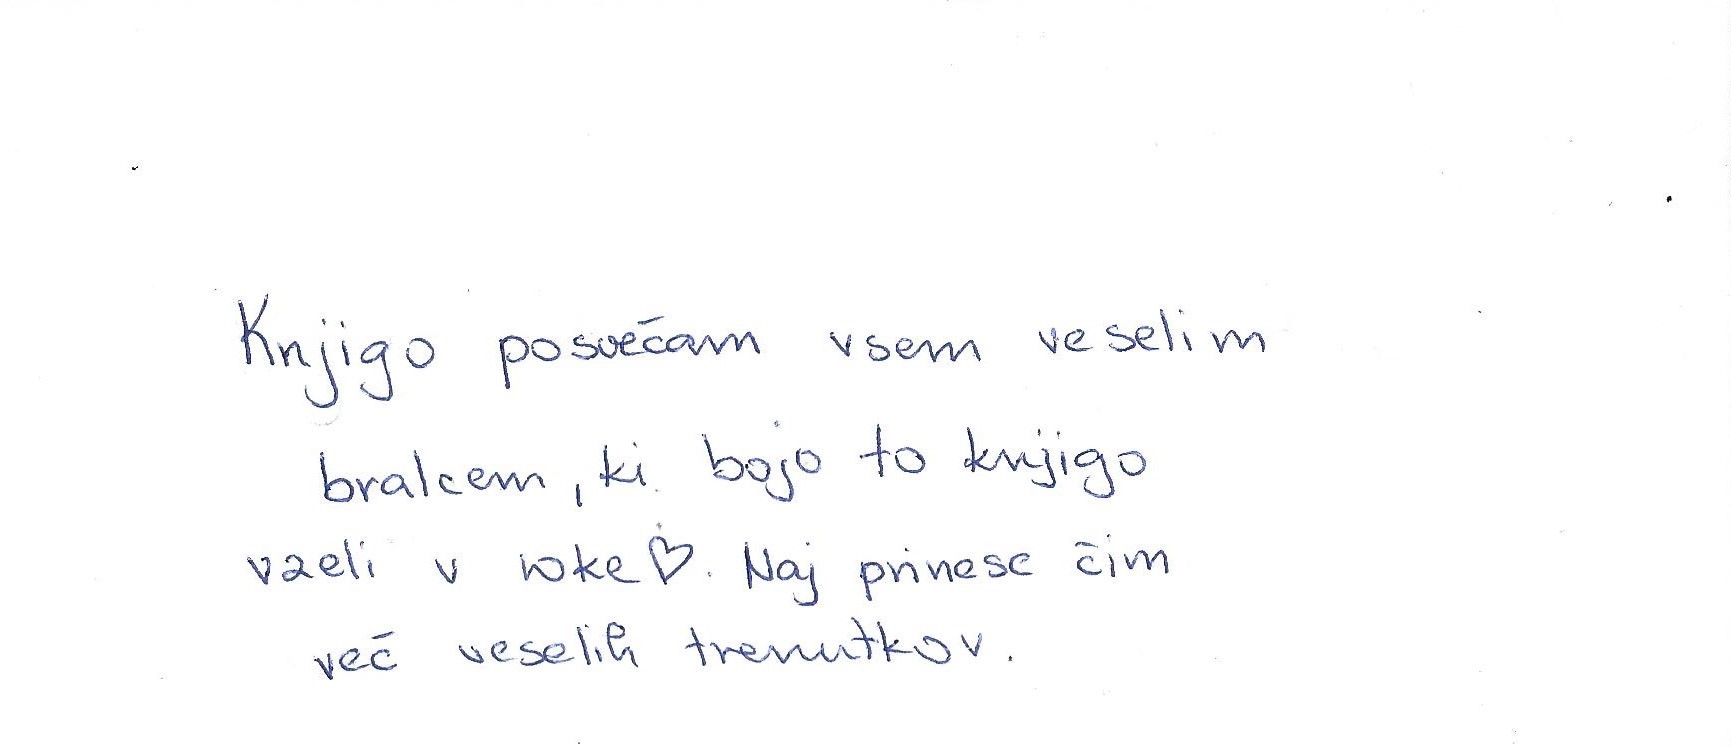 Knjigo posvečam vsem veselim
bralcem, ki bojo to knjigo
vzeli v roke ♡. Naj prinese čim
več veselih trenutkov.